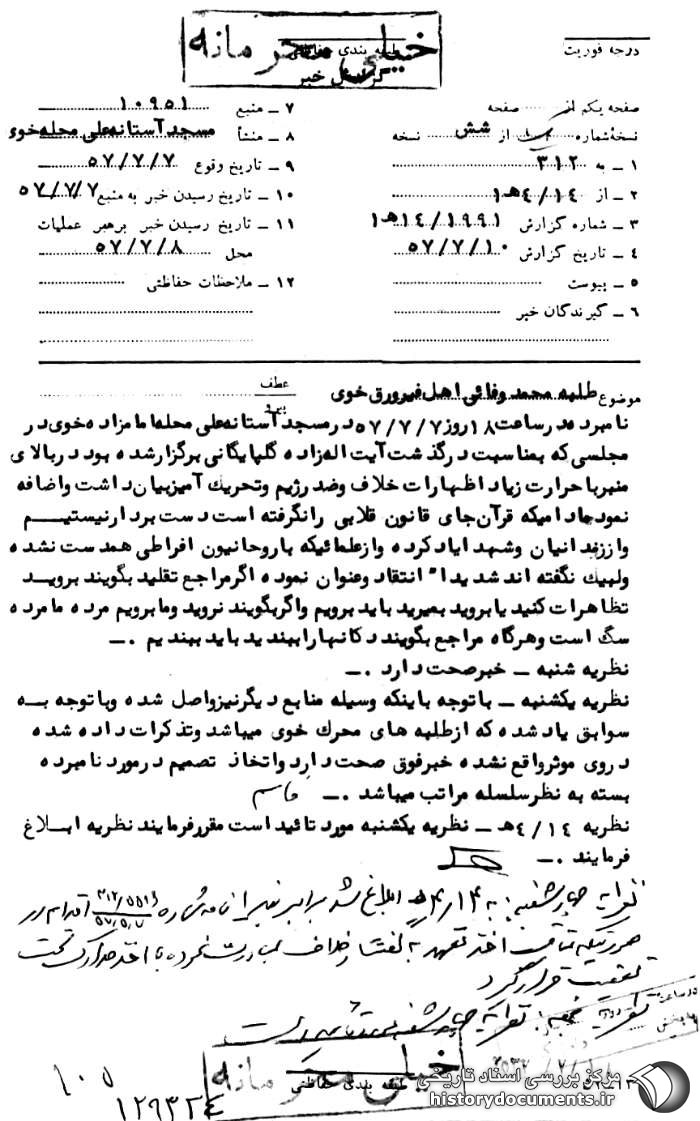 خیلی محرمانه
طبقه بندی حفاظتی
گزارش خبر
درجه فوریت
صفحه یکم از صفحه
نسخه شماره از شش نسخه
۱ ـ به ۳۱۲
۲ ـ از ۴/۱۴ﻫ۱
۳ ـ شماره گزارش ۱۴/۱۹۹۱ﻫ۱
۴ ـ تاریخ گزارش ۵۷/۷/۱۰
۵ ـ پیوست
۶ ـ گیرندگان خبر
۷ ـ منبع ۱۰۹۵۱
۸ ـ منشأ مسجد آستانه علی محله خوی
۹ ـ تاریخ وقوع ۵۷/۷/۷
۱۰ ـ تاریخ رسیدن خبر به منبع ۵۷/۷/۷
۱۱ ـ تاریخ رسیدن خبر برهبر عملیات
محل ۵۷/۷/۸
۱۲ ـ ملاحظات حفاظتی
موضوع طلبه محمد وفائی اهل فیرورق خوی
عطف
نامبرده در ساعت ۱۸ روز ۵۷/۷/۷ در مسجد آستانه علی محله امامزاده خوی در
مجلسی که بمناسبت درگذشت آیت اله زاده گلپایگانی برگزار شده بود در بالای
منبر با حرارت زیاد اظهارات خلاف و ضد رژیم و تحریک آمیز بیان داشت و اضافه
نمود مادامیکه قرآن جای قانون قلابی را نگرفته است دست بردار نیستیم
و از زندانیان و شهدا یاد کرده و از علمائیکه با روحانیون افراطی همدست نشده
ولبیک نگفته اند شدیداً انتقاد و عنوان نموده اگر مراجع تقلید بگویند بروید
تظاهرات کنید یا بروید بمیرید باید برویم و اگر بگویند نروید و ما برویم مرده ما مرده
سگ است و هرگاه مراجع بگویند دکانها را ببندید باید ببندیم .ـ
نظریه شنبه ـ خبر صحت دارد .ـ
نظریه یکشنبه ـ با توجه باینکه وسیله منابع دیگر نیز واصل شده و با توجه به
سوابق یاد شده که از طلبه های محرک خوی میباشد و تذکرات داده شده
در وی موثر واقع نشده خبر فوق صحت دارد و اتخاذ تصمیم در مورد نامبرده
بسته به نظر سلسله مراتب میباشد .ـ قاسم
نظریه ۴/۱۴ﻫ ـ نظریه یکشنبه مورد تائید است مقرر فرمایند نظریه ابلاغ
فرمایند .ـ
نظریه چهارشنبه: به ۴/۱۴ﻫ ابلاغ شد برابر
اخذ تعهد
قرار گیرد
نظریه جمعه: نظریه چهارشنبه مورد تائید است
خیلی محرمانه
طبقه بندی حفاظتی
۱۰۵
۱۲۶۳۲۴
مرکز بررسی اسناد تاریخی
historydocuments.ir